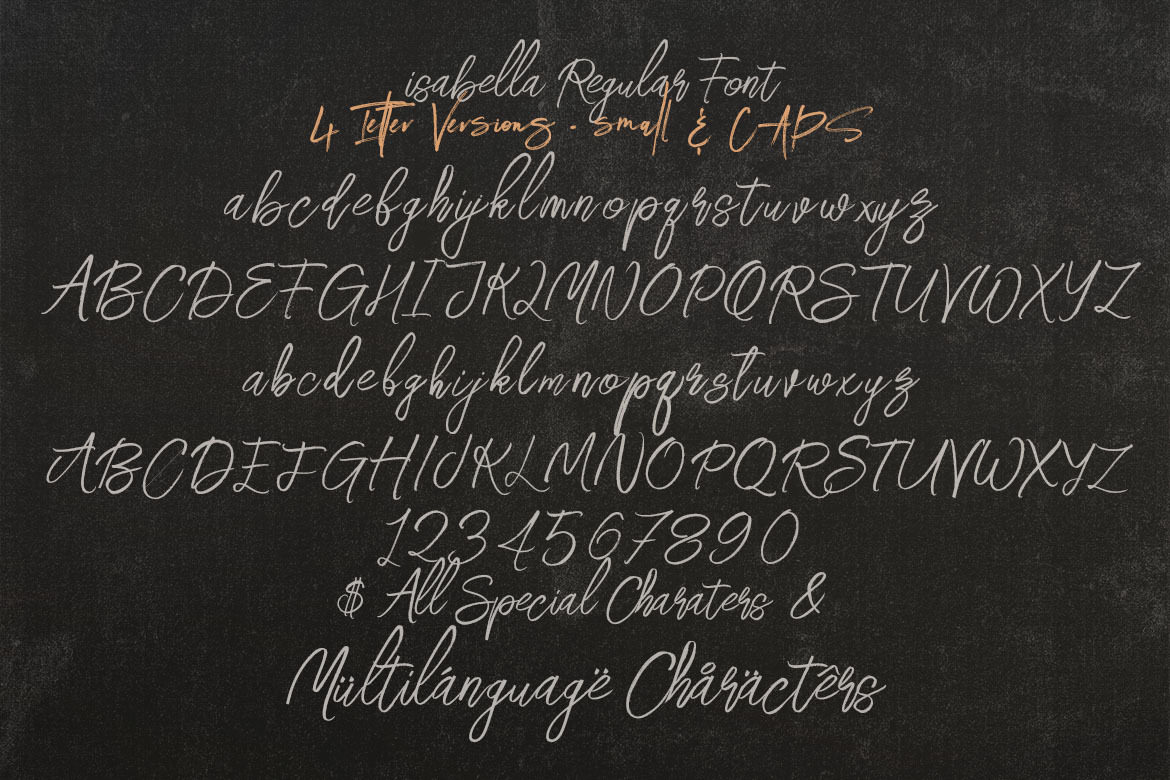 isabella Regular Font
4 letter Versions . small & CAPS
abcdefghijklmnopqrstuvwxyz
ABCDEFGHIJKLMNOPQRSTUVWXYZ
abcdefghijklmnopqrstuvwxyz
ABCDEFGHIJKLMNOPQRSTUVWXYZ
1234567890
$ All Special Charaters &
Mültilánguagë Chåräctêrs